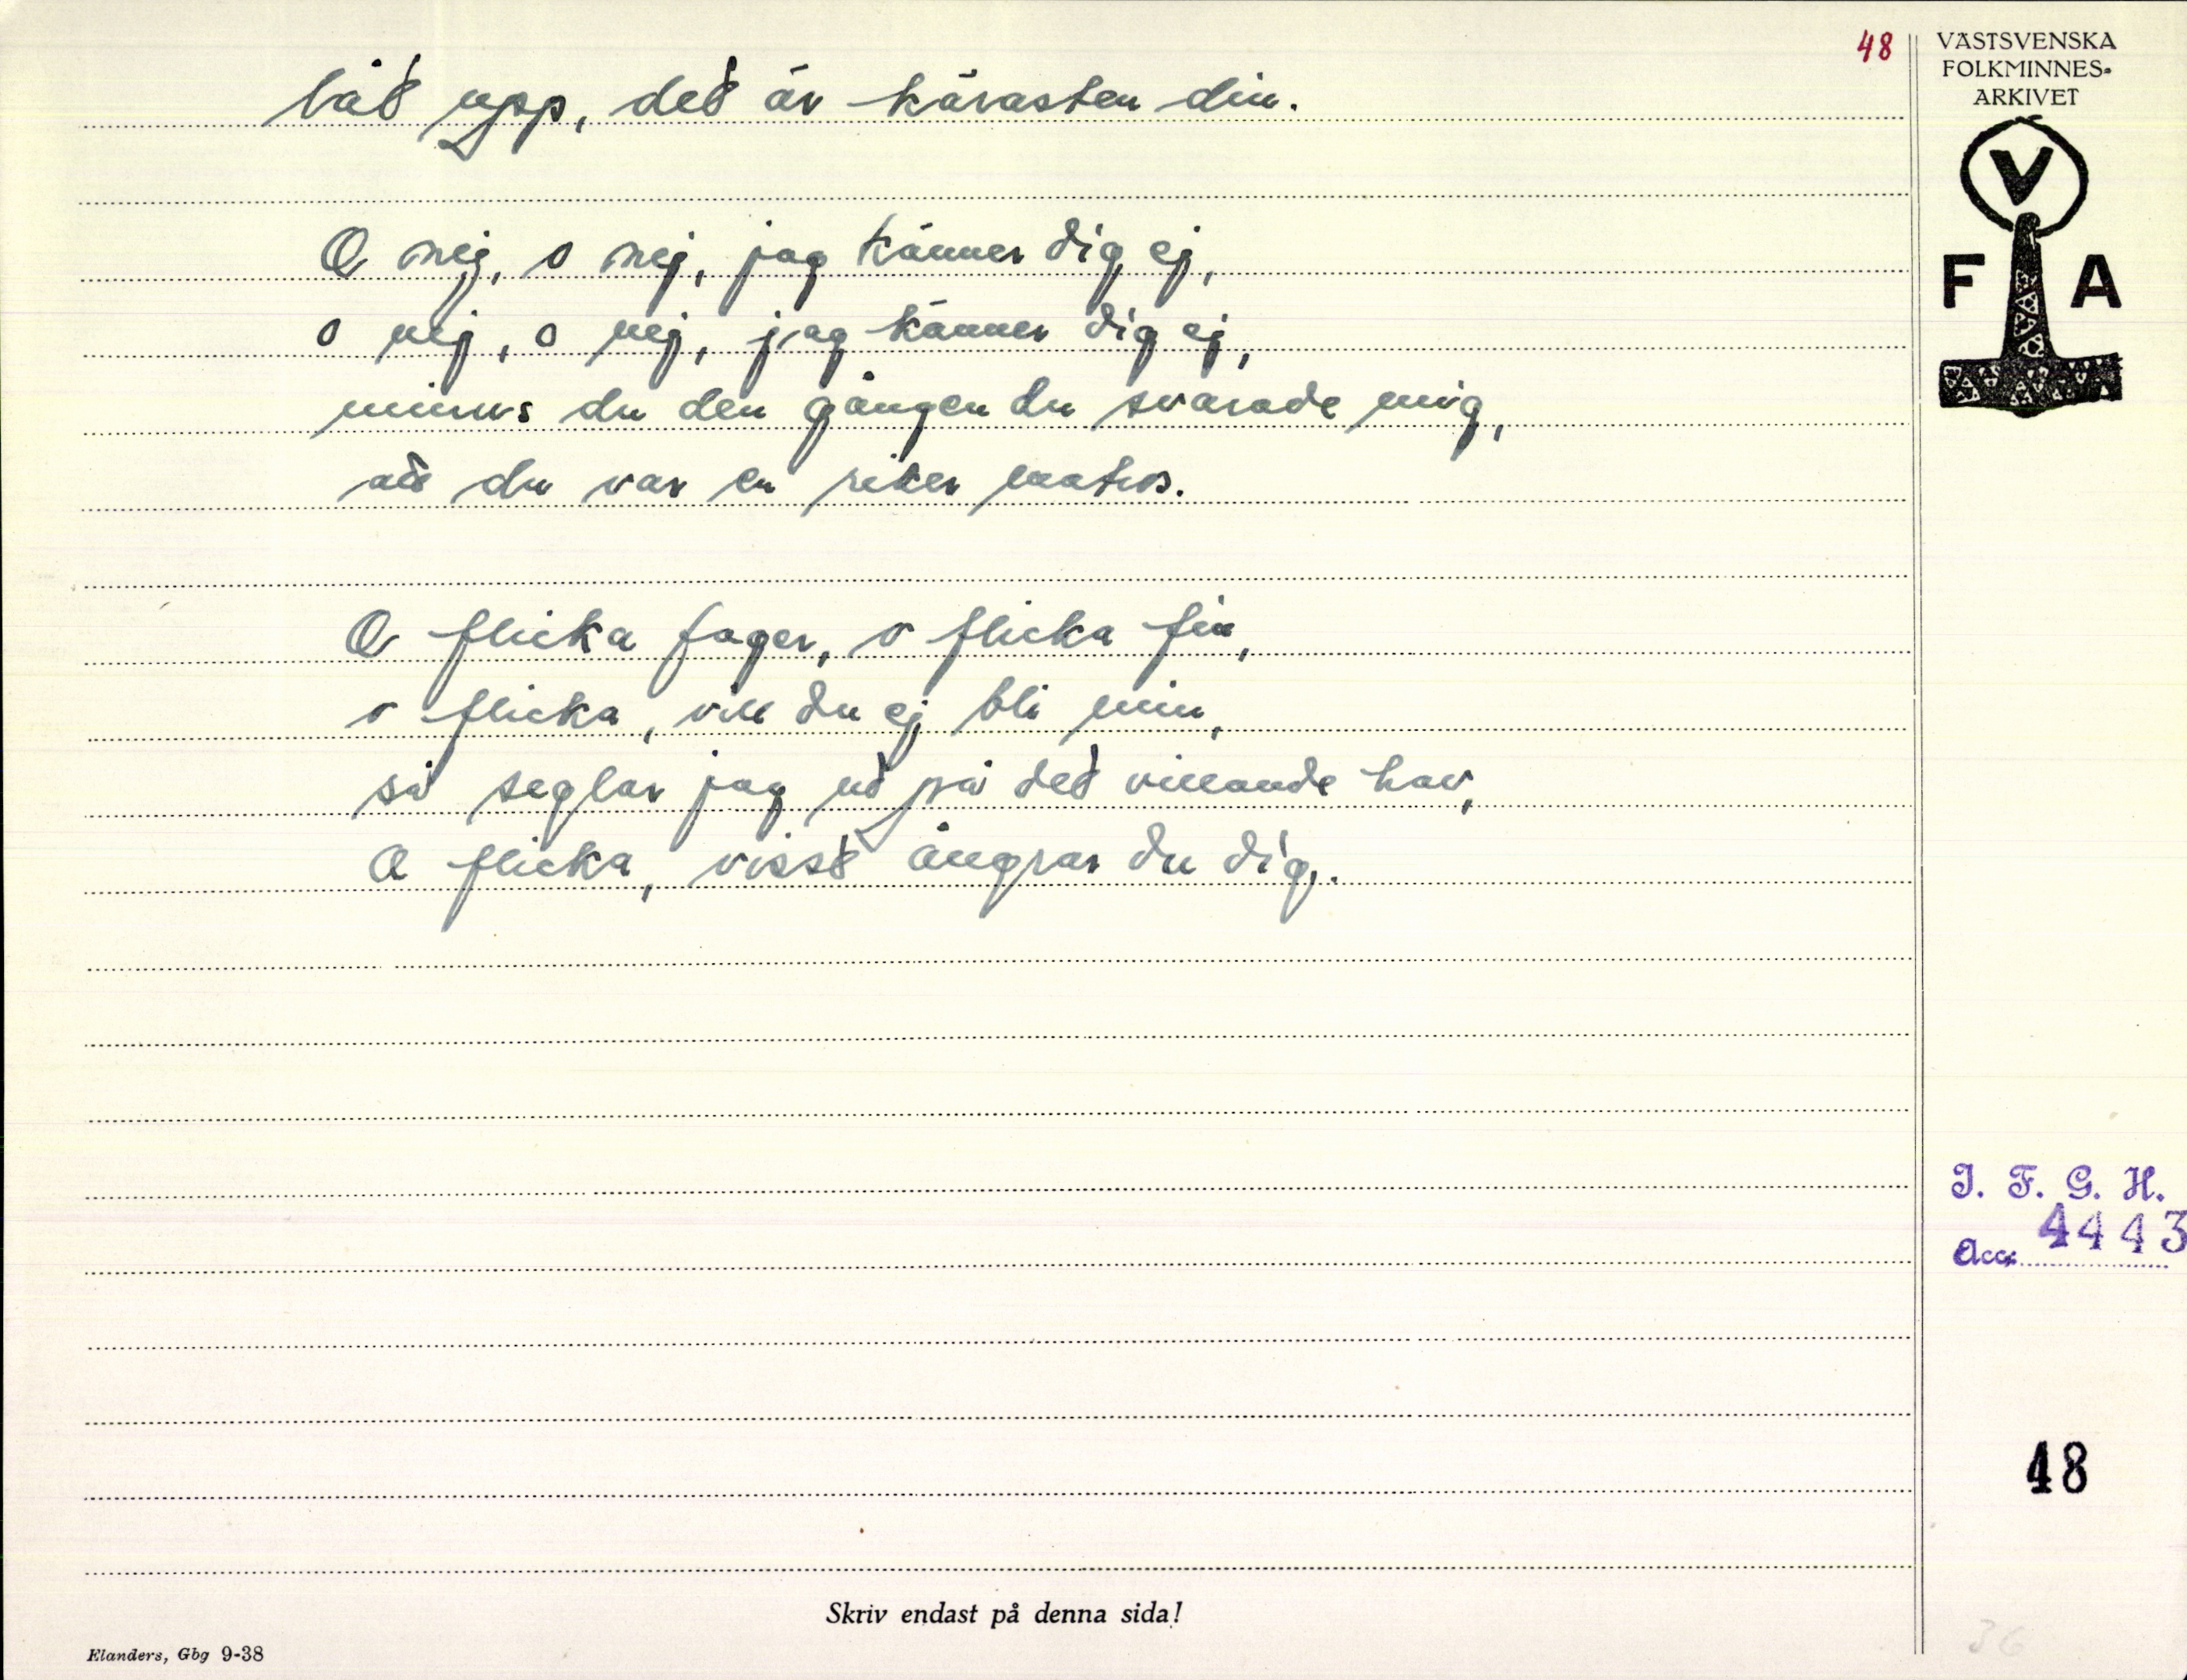 48
VÄSTSVENSKA
FOLKMINNES-
ARKIVET
V
F A
låt upp, det är kärasten din.
O nej, o nej, jag känner dig ej,
o nej, o nej, jag känner dig ej,
minns du den gången du svarade mig,
att du var en riker matros.
O flicka fager, o flicka fin,
o flicka, vill du ej bli min,
så seglar jag ut på det villande hav,
O flicka, visst ångrar du dig.
I. F. G. H.
Acc. 4443
48
Skriv endast på denna sida!
Elanders, Gbg 9-38
36